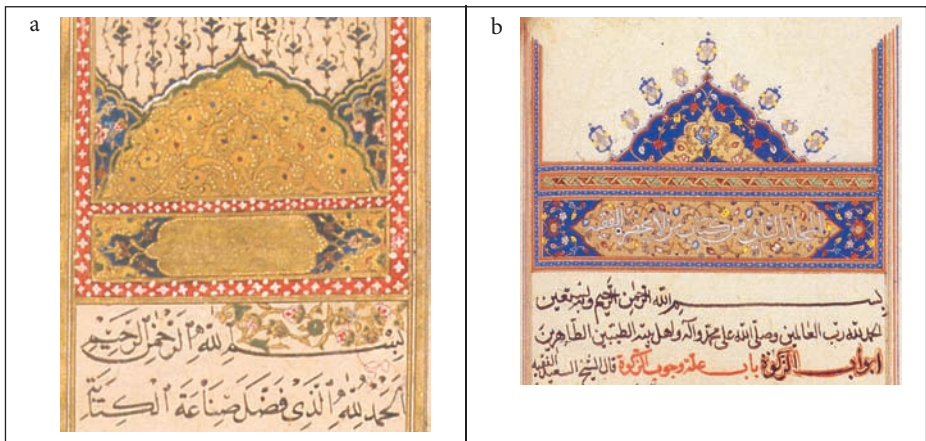 a
بِسْمِ اللهِ الرَّحْمٰنِ الرَّحِيمِ
اَلْحَمْدُ لِلّٰهِ الَّذِي فَضَّلَ صِنَاعَةَ الْكِتَابَةِ
b
المجلد الثاني من كتاب من لا يحضره الفقيه
بسم الله الرحمن الرحيم وبه نستعين
الحمد لله رب العالمين وصلى الله على محمد وآله واهل بيته الطيبين الطاهرين
ابواب الزكوة باب علة وجوب الزكوة قال الشيخ السعيد الفقيه